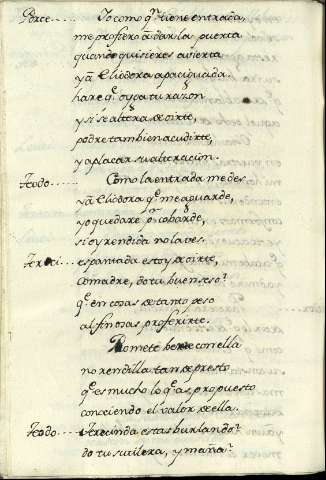 Porce..... Yo como q̃ tiene entrada,
me profiero a dar la puerta
quando quisieres avierta
y a Eliodora apaciguada.
hare q̃ oyga tu razon
y si se altera de oirte,
podre tambien acudirte,
y aplacar su alteracion.
Teodo...... Como la entrada me des
y a Eliodora q̃ me aguarde,
yo quedare por cobarde,
si oy rendida no la ves.
espantada estoy de oirte,
comadre, do tu buen seso?
q̃ en cosas de tanto peso
al fin osas proferirte.
Promete ber con ella
no rendilla tan de presto
q̃ es mucho lo q̃ as propuesto
conociendo el valor de ella.
Teodo.... estas burlando?
do tu suillera, y maña?